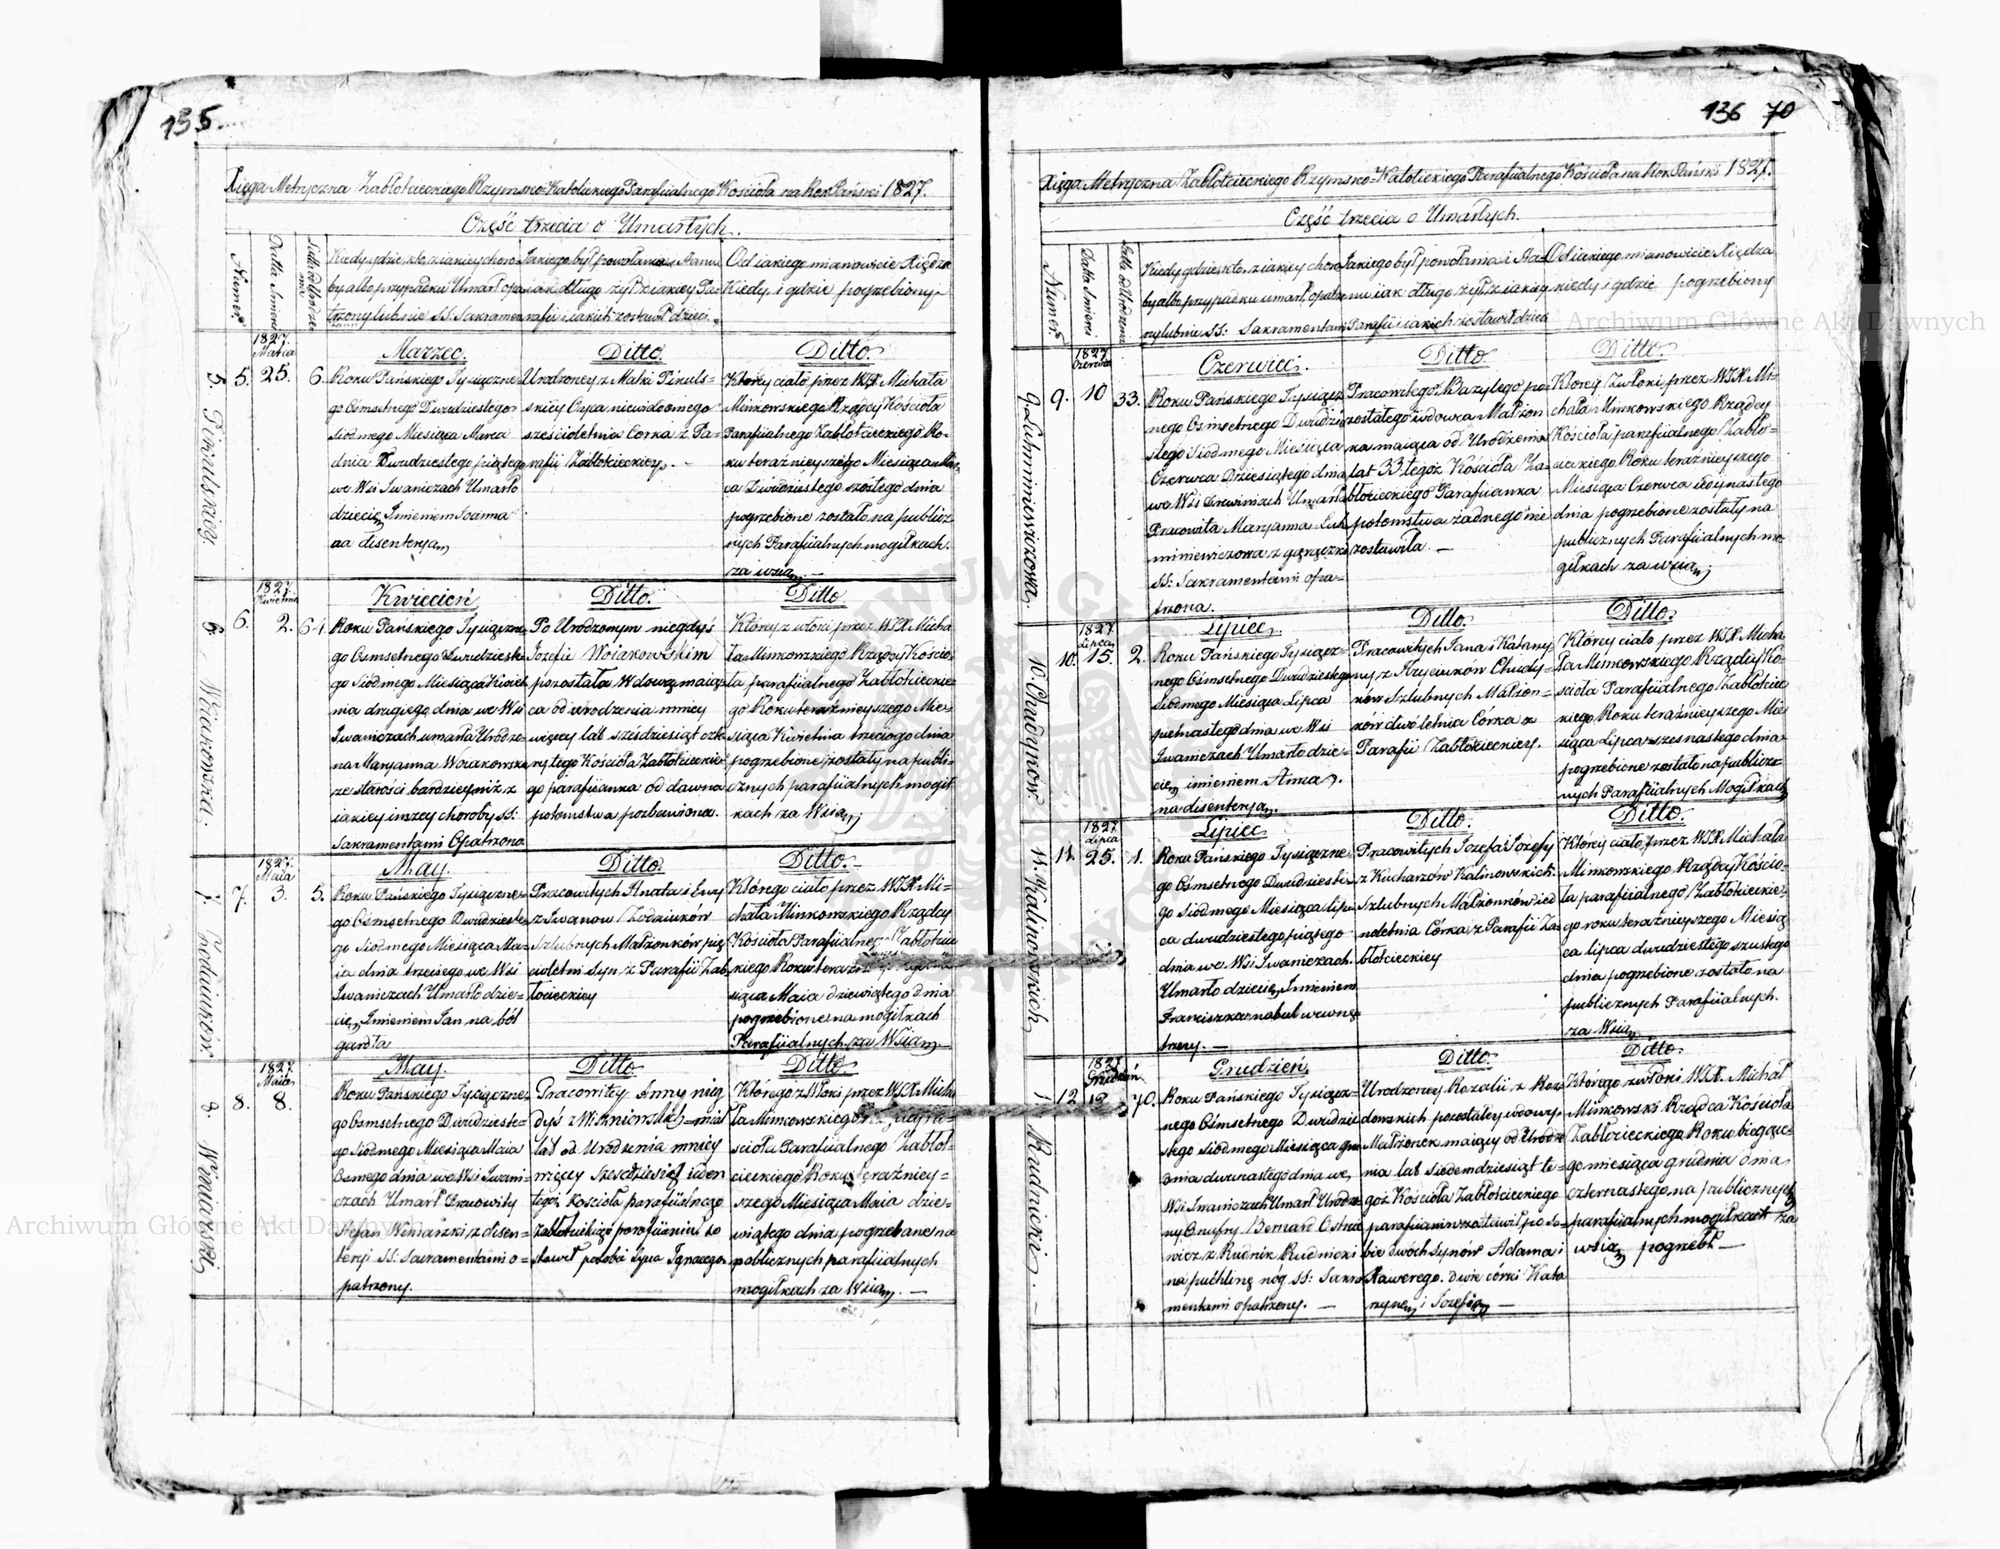 135.
Xięga Metryczna Zabłotieckiego Rzymsko Katolickiego Parafiialnego Kościoła na Rok Pański 1827.
Część trzecia o Umarłych.
Numer
Datta Smierci
Kiedy, gdzie, kto, z iakiey choro-
by albo przypadku Umarł opa-
trzony lub nie SS. Sakramen
Jakiego był powołania i stanu
iak długo żył z iakiey Pa-
rafii i iakich zostawił dzieci.
Od iakiego mianowicie Xiędza
Kiedy, i gdzie pogrzebiony
5. Pikulskiey
5.
1827.
Marca
25.
6.
Marzec.
Roku Pańskiego Tysiączne-
go Ośmsetnego Dwudziestego
Siódmego Miesiąca Marca
dnia Dwudziestego piątego
we Wsi Iwaniczach Umarło
dziecię Imieniem Joanna
na disenteryą
Ditto.
Urodzoney z Matki Pikuls-
skiey Oyca niewiadomego
sześcioletnia Corka z Pa-
rafii Zabłotieckiey. -
Ditto.
Ktorey ciało przez WJX Michała
Minkowskiego Rządcy Kościoła
Parafiialnego Zabłotieckiego Ro-
ku teraźnieyszego Miesiąca Mar-
ca Dwudziestego szóstego dnia
pogrzebione zostało na publicz-
nych Parafiialnych mogiłkach.
za wsią -
6. Woiakowska.
6.
1827
Kwietnia
2.
64.
Kwiecień
Roku Pańskiego Tysiączne-
go Ośmsetnego Dwudzieste
go Siódmego Miesiąca Kwiet
nia drugiego dnia we Wsi
Iwaniczach umarła Urodzo-
na Maryanna Woiakowska
ze starości bardziey niż z
iakiey inszey choroby SS:
Sakramentami Opatrzona
Ditto.
Po Urodzonym niegdyś
Jozefie Woiakowskim
pozostała Wdową maiąc
ca od urodzenia mniey
więcey lat sześdziesiąt czte
ry tego Kościoła Zabłotieckie
go parafiianka od dawna
potomstwa pozbawiona.
Ditto.
Ktorey zwłoki przez WJX Micha
ła Minkowskiego Rządcy Kościo
ła parafiialnego Zabłotieckie-
go Roku teraźnieyszego Mie-
siąca Kwietnia trzeciego dnia
pogrzebione zostały na publi-
cznych parafiialnych mogił
kach za Wsią
7. Zodziuków
7.
1827.
Maia
3.
5.
May.
Roku Pańskiego Tysiączne-
go Ośmsetnego Dwudzieste
go Siódmego Miesiąca Ma-
ia dnia trzeciego we Wsi
Iwaniczach Umarło dzie-
cię Imieniem Jan na ból
gardła
Ditto.
Pracowitych Ihnata i Ewy
z Iwanow Zodziuków
Szlubnych Małżonków pię
cioletni Syn z Parafii Zab
łotieckiey
Ditto.
Którego ciało przez WJX Mi-
chała Minkowskiego Rządcy
Kościoła Parafiialnego Zabłotiec
kiego Roku
siąca Maia dziewiątego dnia
pogrzebione na mogiłkach
Parafiialnych za Wsią
8. Winiarski
8.
1827
Maia
8.
May.
Roku Pańskiego Tysiączne
go Ośmsetnego Dwudzieste-
go Siódmego Miesiąca Maia
Osmego dnia we Wsi Iwani-
czach Umarł Pracowity
Stefan Winiarski z disen-
teryi SS: Sacramentami o-
patrzony.
Ditto.
Pracowitey Anny nieg
dyś z miał
lat od Urodzenia mniey
więcey Sześćdziesiąt ieden
tegoż Kościoła parafiialnego
zabłotieckiego parafiianin zo
stawił po sobie Syna Ignacego
Ditto.
Którego zwłoki przez WJX Micha
ła Minkowskiego
scioła Parafiialnego Zabłot-
cieckiego Roku Teraźniey-
szego Miesiąca Maia dzie-
wiątego dnia pogrzebane na
publicznych parafiialnych
mogiłkach za Wsią. -
136 70
Xięga Metryczna Zabłotieckiego Rzymsko-Katolickiego Parafiialnego Kościoła na Rok Pański 1827.
Część trzecia o Umarłych.
Numer
Datta Smierci
Kiedy gdzie kto, z iakiey choro
by albo przypadku umarł, opatrzo
ny lub nie SS: Sakramentami
Jakiego był powołania i sta-
nu iak długo żył z iakiey
Parafii i iakich zostawił dzieci
Od iakiego mianowicie Xiędza
kiedy i gdzie pogrzebiony
9. Luhminiewiczowa
9.
1827
Czerwca
10
33.
Czerwiec.
Roku Pańskiego Tysiącz
nego Osmsetnego Dwudzie
stego Siodmego Miesiąca
Czerwca Dziesiątego dnia
we Wsi Umarła
Pracowita Maryanna Luh
miniewiczowa z gorączki
SS: Sakramentami opa-
trzona.
Ditto
Pracowitego Bazylego po-
zostałego wdowca Małżon
ka maiąca od Urodzenia
lat 33. tegoż Kościoła Za-
błotieckiego Parafiianka
potomstwa żadnego nie
zostawiła. -
Ditto
Ktorey Zwłoki przez WJX Mi-
chała Minkowskiego Rządcy
Kościoła parafiialnego Zabło-
tieckiego Roku teraźnieyszego
Miesiąca Czerwca iedynastego
dnia pogrzebione zostały na
publicznych Parafiialnych mo-
giłkach za wsią
10. Chudynów.
10.
1827
Lipca
15.
2.
Lipiec.
Roku Pańskiego Tysiącz-
nego Ośmsetnego Dwudziestego
Siódmego Miesiąca Lipca
pietnastego dnia we Wsi
Iwaniczach Umarło dzie-
cię imieniem Anna
na disenteryą
Ditto.
Pracowitych Jana i Katarzy
ny z Hryciuków Chudy-
nów Szlubnych Małżon-
ków dwóletnia Córka z
Parafii Zabłotieckiey.
Ditto.
Którey ciało przez WJX Micha
ła Minkowskiego Rządcy Ko-
ścioła Parafiialnego Zabłotiec
kiego Roku teraźnieyszego Mie
siąca Lipca szesnastego dnia
pogrzebione zostało na publicz-
nych Parafiialnych Mogiłkach
11. Kalinowskich
11.
1827
Lipca
25.
1.
Lipiec
Roku Pańskiego Tysiączne
go Ośmsetnego Dwudzieste
go Siódmego Miesiąca Lip-
ca dwudziestego piątego
dnia we Wsi Iwaniczach.
Umarło dziecię Imieniem
Franciszka na bul wewnę-
trzny. -
Ditto.
Pracowitych Jozefa i Józefy
z Kucharzów Kalinowskich
Szlubnych Małżonków ied
noletnia Córka z Parafii Za
błotieckiey
Ditto.
Którey ciało przez WJX Michała
Minkowskiego Rządcy Kościo-
ła parafiialnego Zabłotieckie-
go roku teraźnieyszego Miesią
ca lipca dwudziestego szustego
dnia pogrzebione zostało na
publicznych Parafiialnych.
za Wsią
Rudnickie. -
12
1827
Grudzień
12
70.
Grudzień.
Roku Pańskiego Tysiącz-
nego Ośmsetnego Dwudzie
stego Siodmego Miesiąca Gru
dnia dwunastego dnia we
Wsi Iwaniczach Umarł Urodzo
ny Onufry Bernard Ostrze
wicz z Rudnik Rudnicki
na puchlinę nóg SS: Sakra
mentami opatrzony. -
Ditto
Urodzoney Rozalii z Roz
dowskich pozostałey wdowy
Małżonek maiący od Urodze
nia lat Siedemdziesiąt te-
goż Kościoła Zabłotieckiego
parafiianin zostawił po so-
bie dwóch Synów Adama i
Xawerego. dwie córki Kata
rzynę i Jozefią -
Ditto.
Którego zwłoki WJX. Michał
Minkowski Rządca Kościoła
Zabłotieckiego Roku bieżące-
go miesiąca grudnia dnia
czternastego na publicznych
parafiialnych mogiłkach za
wsią pogrzebł -
Archiwum Główne Akt Dawnych
Archiwum Główne Akt Dawnych